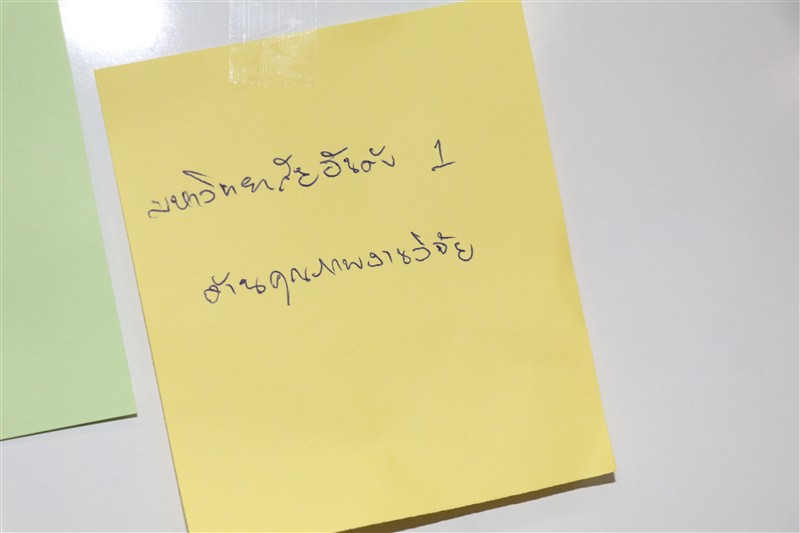 มหาวิทยาลัยอันดับ 1
ด้านคุณภาพงานวิจัย